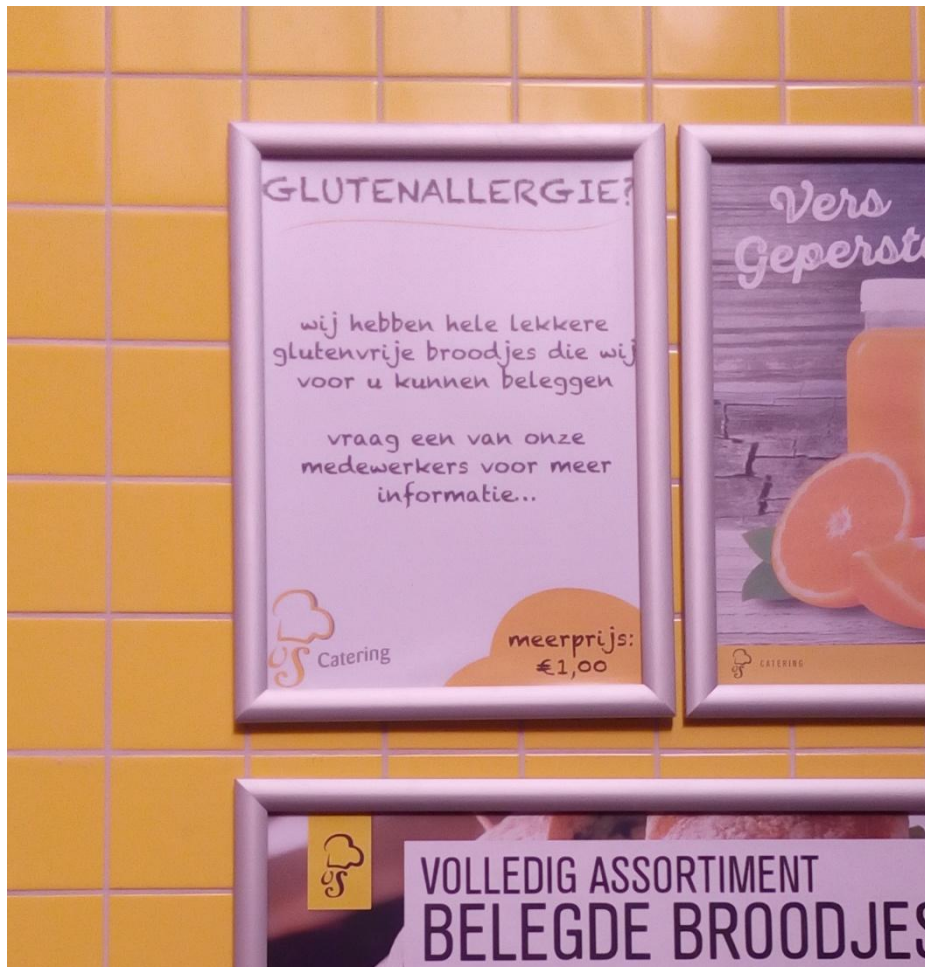 GLUTENALLERGIE?
wij hebben hele lekkere
glutenvrije broodjes die wij
voor u kunnen beleggen
vraag een van onze
medewerkers voor meer
informatie...
Catering
meerprijs:
€1,00
Vers
Geperste
CATERING
VOLLEDIG ASSORTIMENT
BELEGDE BROODJES